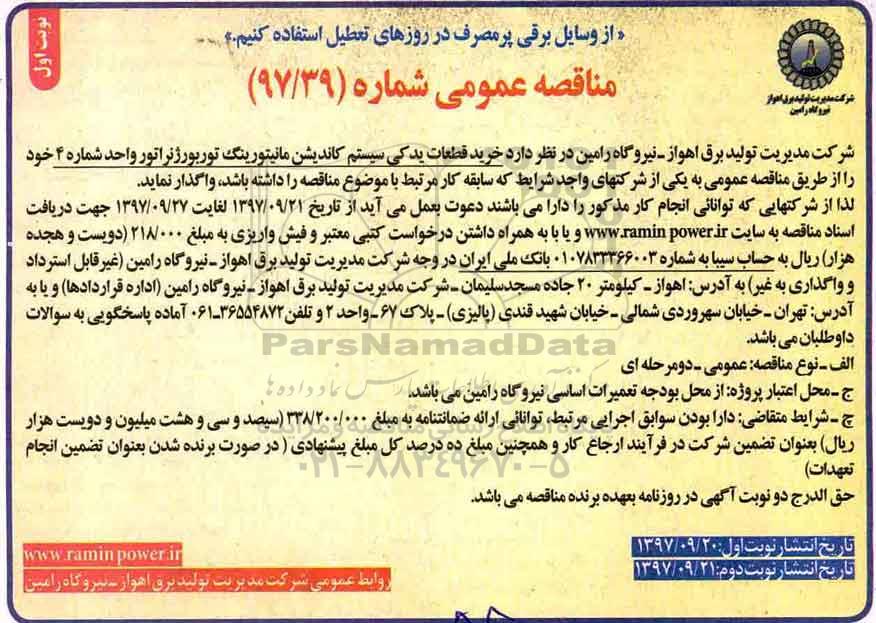 نوبت اول
« از وسایل برقی پرمصرف در روزهای تعطیل استفاده کنیم.»
مناقصه عمومی شماره (۹۷/۳۹)
شرکت مدیریت تولید برق اهواز
نیروگاه رامین
شرکت مدیریت تولید برق اهواز ـ نیروگاه رامین در نظر دارد خرید قطعات یدکی سیستم کاندیشن مانیتورینگ توربوژنراتور واحد شماره ۴ خود
را از طریق مناقصه عمومی به یکی از شرکتهای واجد شرایط که سابقه کار مرتبط با موضوع مناقصه را داشته باشد، واگذار نماید.
لذا از شرکتهایی که توانائی انجام کار مذکور را دارا می باشند دعوت بعمل می آید از تاریخ ۱۳۹۷/۰۹/۲۱ لغایت ۱۳۹۷/۰۹/۲۷ جهت دریافت
اسناد مناقصه به سایت www.ramin power.ir و یا با به همراه داشتن درخواست کتبی معتبر و فیش واریزی به مبلغ ۲۱۸/۰۰۰ (دویست و هجده
هزار) ریال به حساب سیبا به شماره ۰۱۰۷۸۳۳۳۶۶۰۰۳ بانک ملی ایران در وجه شرکت مدیریت تولید برق اهواز ـ نیروگاه رامین (غیرقابل استرداد
و واگذاری به غیر) به آدرس: اهواز ـ کیلومتر ۲۰ جاده مسجدسلیمان ـ شرکت مدیریت تولید برق اهواز ـ نیروگاه رامین (اداره قراردادها) و یا به
آدرس: تهران ـ خیابان سهروردی شمالی ـ خیابان شهید قندی (پالیزی) ـ پلاک ۶۷ ـ واحد ۲ و تلفن ۳۶۵۵۴۸۷۲ـ۰۶۱ آماده پاسخگویی به سوالات
داوطلبان می باشد.
ParsNamadData
الف ـ نوع مناقصه: عمومی ـ دومرحله ای
ج ـ محل اعتبار پروژه: از محل بودجه تعمیرات اساسی نیروگاه رامین می باشد.
چ ـ شرایط متقاضی: دارا بودن سوابق اجرایی مرتبط، توانائی ارائه ضمانتنامه به مبلغ ۳۳۸/۲۰۰/۰۰۰ (سیصد و سی و هشت میلیون و دویست هزار
ریال) بعنوان تضمین شرکت در فرآیند ارجاع کار و همچنین مبلغ ده درصد کل مبلغ پیشنهادی ( در صورت برنده شدن بعنوان تضمین انجام
تعهدات)
۰۲۱-۸۸۳۴۹۶۷۰-۵
حق الدرج دو نوبت آگهی در روزنامه بعهده برنده مناقصه می باشد.
تاریخ انتشار نوبت اول: ۱۳۹۷/۰۹/۲۰
تاریخ انتشار نوبت دوم: ۱۳۹۷/۰۹/۲۱
www.ramin power.ir
روابط عمومی شرکت مدیریت تولید برق اهواز ـ نیروگاه رامین